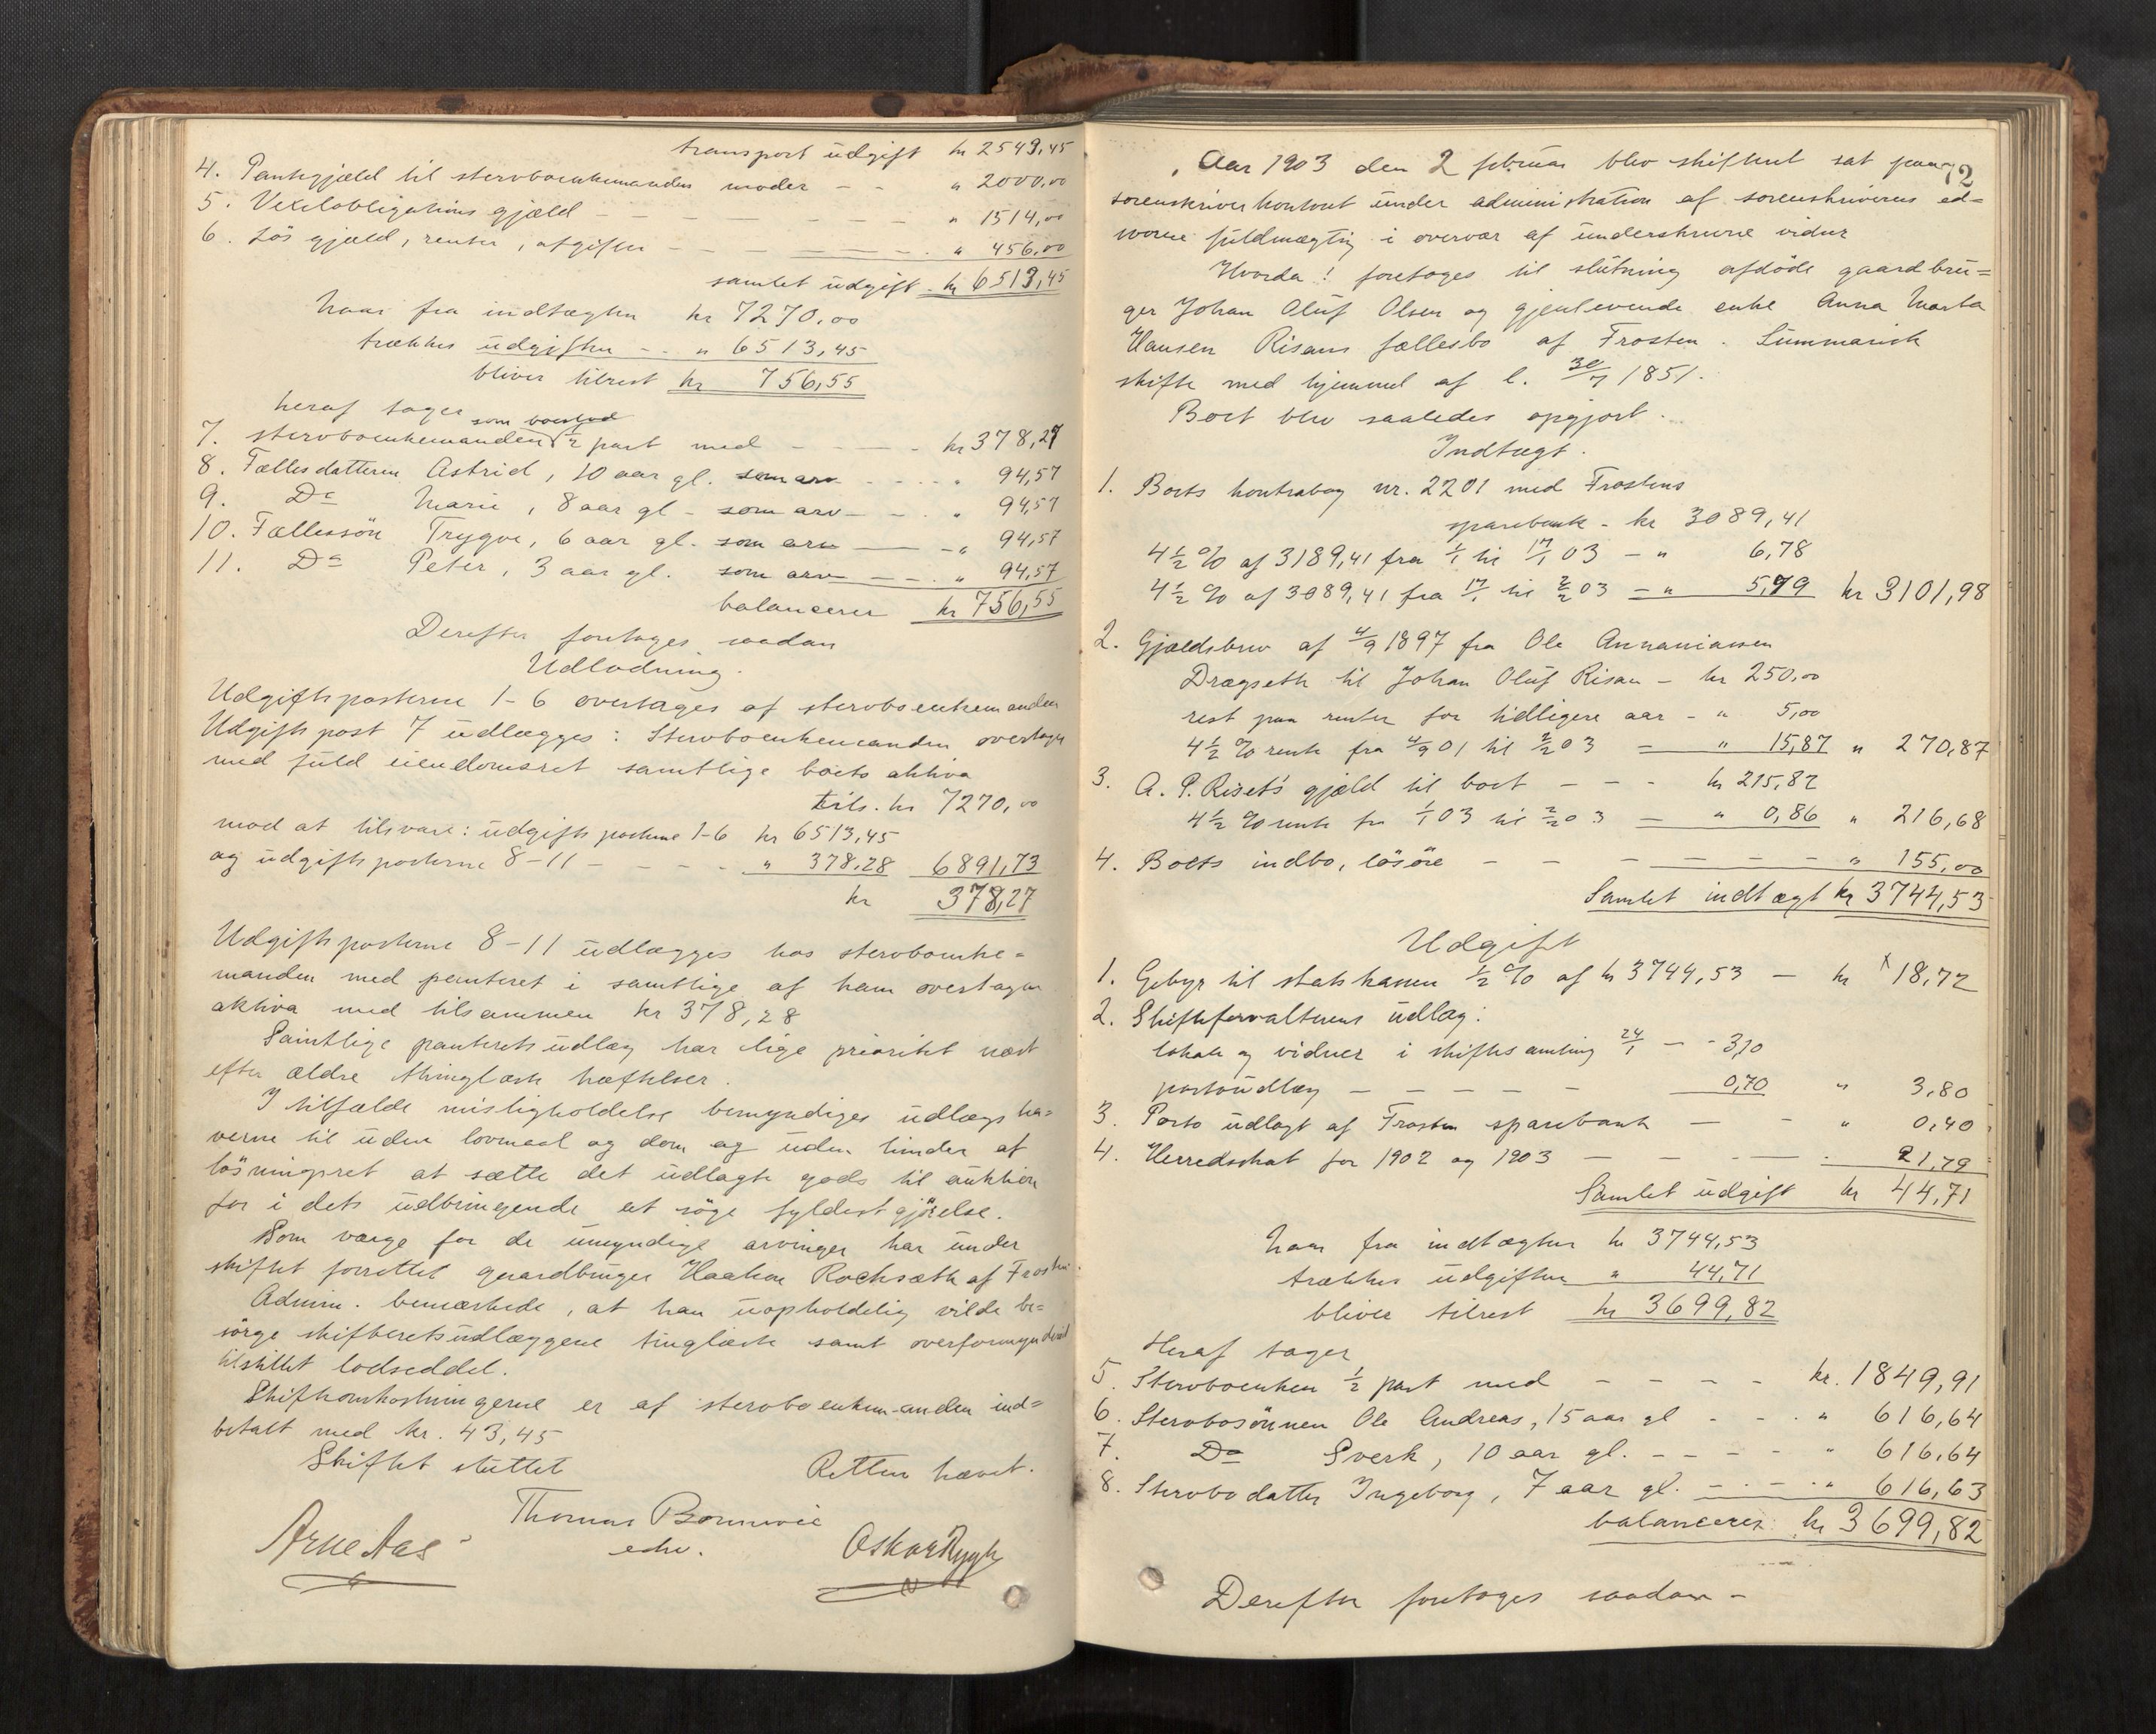 transport udgift kr 2543,45
4. Pantegjæld til sterboenkemandens moder - - " 2000,00
5. Vexelobligations gjæld - - - - - - " 1514,00
6. Løs gjæld, renter, afgifter - - - - " 456,00
samlet udgift - kr 6513,45
Naar fra indtægten kr 7270,00
trækkes udgiften - - " 6513,45
bliver tilrest kr 756,55
heraf tager
som boeslod
7. sterboenkemanden 1/2 part med - - - - kr 378,27
8. Fællesdatteren Astrid, 10 aar gl. som arv - - - - " 94,57
9. Do Marie, 8 aar gl - som arv - - - " 94,57
10. Fællessøn Trygve, 6 aar gl. som arv - - - " 94,57
11. Do Peter, 3 aar gl. som arv - - - " 94,57
balancerer kr 756,55
Derefter foretoges saadan
Udlodning.
Udgiftsposterne 1-6 overtages af sterboenkemanden
Udgiftspost 7 udlægges: Sterboenkemanden overtager
med fuld eiendomsret samtlige boets aktiva
tils. kr 7270,00
mod at tilsvare: udgiftsposterne 1-6 kr 6513,45
og udgiftsposterne 8-11 - - - - " 378,28 6891,73
kr 378,27
Udgiftsposterne 8-11 udlægges hos sterboenke=
manden med panteret i samtlige af ham overtagne
aktiva med tilsammen kr 378,28
Samtlige panteretsudlæg har lige prioritet næst
efter ældre thinglæste hæftelser.
I tilfælde misligholdelse bemyndiges udlægsha=
verne til uden lovmaal og dom og uden hinder af
løsningsret at sætte det udlagte gods til auktion
for i dets udbringende at søge fyldestgjørelse.
Som værge for de umyndige arvinger har under
skiftet forrettet gaardbruger Haakon Rochsæth af Frosten.
Admin. bemærkede, at han uopholdelig vilde be=
sørge skifteretsudlæggene tinglæste samt overformynderiet
tilstillet lodseddel.
Skifteomkostningerne er af sterboenkemanden ind=
betalt med kr. 43,45
Skiftet sluttet Retten hævet.
Thomas Bonnevie
edsv.
Arne Aas Oskar Rygh
72
Aar 1903 den 2 februar blev skifteret sat paa
sorenskriverkontoret under administration af sorenskriverens ed=
svorne fuldmægtig i overvær af underskrevne vidner
Hvorda! foretoges til slutning afdøde gaardbru=
ger Johan Oluf Olsen og gjenlevende enke Anna Marta
Hansen Risans fællesbo af Frosten. Summarisk
skifte med hjemmel af l. 30/7 1851.
Boet blev saaledes opgjort.
Indtægt.
1. Boets kontrabog nr. 2201 med Frostens
sparebank - kr 3089,41
4 1/2 % af 3189,41 fra 1/1 til 17/1 03 - " 6,78
4 1/2 % af 3089,41 fra 17/1 til 2/2 03 = " 5,79 kr 3101,98
2. Gjældsbrev af 4/9 1897 fra Ole Annaniassen
Drægseth til Johan Oluf Risan - kr 250,00
rest paa renter for tidligere aar - " 5,00
4 1/2 % rente fra 4/9 01 til 2/2 03 = " 15,87 " 270,87
3. A. P. Riset's gjæld til boet - - - kr 215,82
4 1/2 % rente fra 1/1 03 til 2/2 03 = " 0,86 " 216,68
4. Boets indbo, løsøre - - - - - - " 155,00
Samlet indtægt kr 3744,53
Udgift
1. Gebyr til statskassen 1/2 % af kr 3744,53 - kr x 18,72
2. Skifteforvalterens udlæg:
lokale og vidner i skiftesamling 24/1 - - 3,10
portoudlæg - - - - - 0,70 " 3,80
3. Porto udlagt af Frosten sparebank - - " 0,40
4. Herredsskat for 1902 og 1903 - - - - 21,79
Samlet udgift kr 44,71
Naar fra indtægten kr 3744,53
trækkes udgiften " 44,71
bliver tilrest kr 3699,82
Heraf tager
5. Sterboenken 1/2 part med - - - - kr. 1849,91
6. Sterbosønnen Ole Andreas, 15 aar gl - - - " 616,64
7. Do Sverk, 10 aar gl. - - - - " 616,64
8. Sterbodatter Ingeborg, 7 aar gl. - - - - " 616,63
balancerer kr 3699,82
Derefter foretoges saadan -